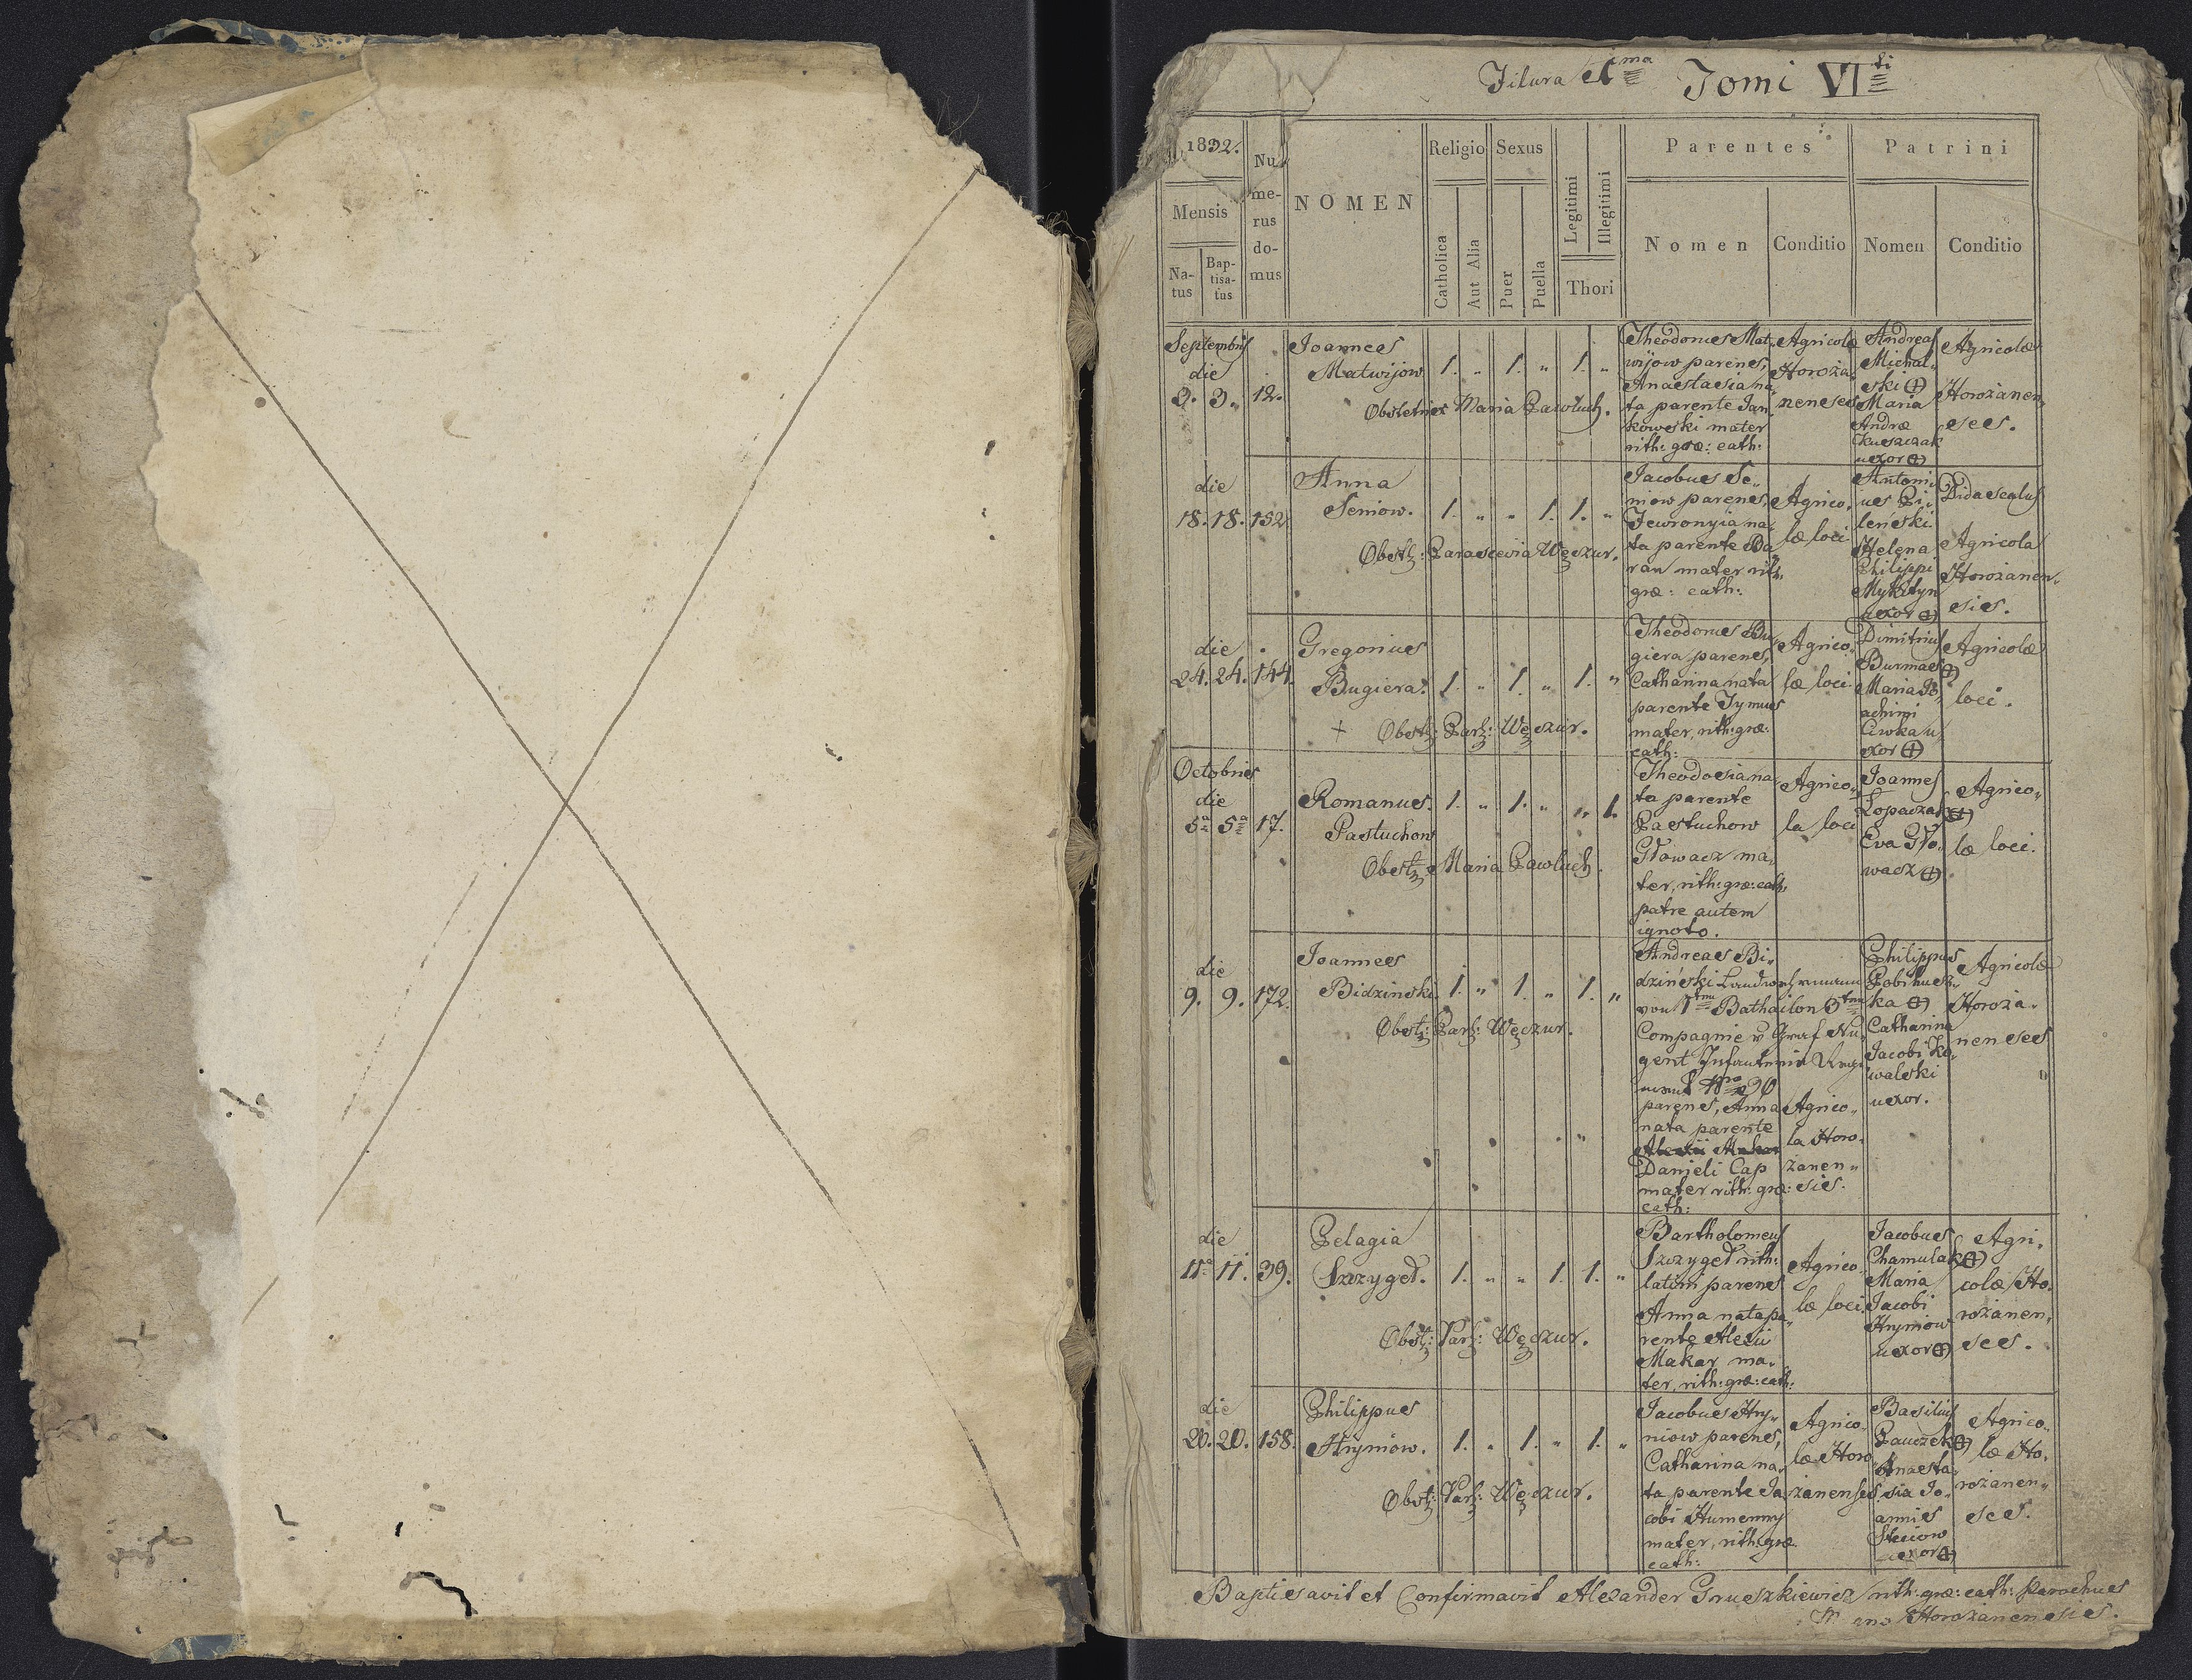 Tomi VI ti
1832.
Nu
me-
rus
do-
mus
NOMEN
Religio
Sexus
Parentes
Patrini
Mensis
Na-
tus
Bap-
tisa-
tus
Catholica
Aut Alia
Puer
Puella
Legitimi
Illegitimi
Thori
Nomen
Conditio
Nomen
Conditio
Septembris
die
3. 3. 12.
Joannes
Matwijow. 1. „ 1. „ 1. „
Obstetrix Maria Pawluch.
Theodorus Mat-
wijow parens,
Anastasia na-
ta parente Jan
kowski mater
rith: græ: cath:
Agricolæ
Horoża-
nenses
Andreas
Michal-
ski
Maria
Andræ
uxor
Agricolæ
Horożanen-
ses.
die
18. 18. 152
Anna
Seniow. 1. „ „ 1. 1. „
Obst: Parascevia Węczur.
Jacobus Se-
niow parens,
Fewronyia na-
ta parente Ba-
ran mater rith.
græ: cath:
Agrico-
læ loci
Antoni-
us Pi-
leński
Helena
Philippi
Mykityn
uxor
Didascalus
Agricola
Horożanen-
sis.
die
24. 24. 144.
Gregorius
Bugiera. 1. „ 1. „ 1. „
+ Obst: Par: Węczur.
Theodorus Bu-
giera parens,
Catharina nata
parente Tymus
mater, rith: græ:
cath:
Agrico-
læ loci
Dimitrius
Burmas
Maria Jo-
achimi
Ciwka u-
xor
Agricolæ
loci.
Octobris
die
5a 5a 17.
Romanus. 1. „ 1. „ „ 1.
Pastuchow
Obst: Maria Pawluch.
Theodosia na-
ta parente
Pastuchow
Głowacz ma-
ter, rith: græ: cath:
patre autem
ignoto.
Agrico-
la loci
Joannes
Łopaczak
Eva Gło-
wacz
Agrico-
læ loci.
die
9. 9. 172.
Joannes
Bidziński. 1. „ 1. „ 1. „
Obst: Par: Węczur.
Andreas Bi-
dziński Landwehrmann
von 1ten Bathailon 3ten
Compagnie v Graf Nu-
gent Infanterie Regi-
ment No 30
parens, Anna
nata parente
Danieli Cap
mater rith: græ:
cath:
Agrico-
la Horo-
żanen-
sis.
Philippus
Catharina
Jacobi Ko-
walski
uxor.
Agricolæ
Horoża-
nenses
die
11a 11. 39.
Pelagia
Szczygeł. 1. „ „ 1. 1. „
Obst: Par: Węczur.
Bartholomeus
Szczygeł rith:
latini parens
Anna nata pa-
rente Alexii
Makar ma-
ter, rith: græ: cath:
Agrico-
læ loci.
Jacobus
Chamulak
Maria
Jacobi
Hryniow
uxor
Agri-
colæ Ho-
rożanen-
ses.
die
20. 20. 158.
Philippus
Hryniow. 1. „ 1. „ 1. „
Obst: Par: Węczur.
Jacobus Hry-
niow parens,
Catharina na-
ta parente Ja-
cobi Humenny
mater, rith: græ
cath:
Agrico-
læ Horo-
żanenses
Basilius
Anasta-
sia Jo-
annis
Steciow
uxor
Agrico-
læ Ho-
rożanen-
ses.
Baptisavit et Confirmavit Alexander Gruszkiewicz rith: græ: cath: parochus
Horożanensis.